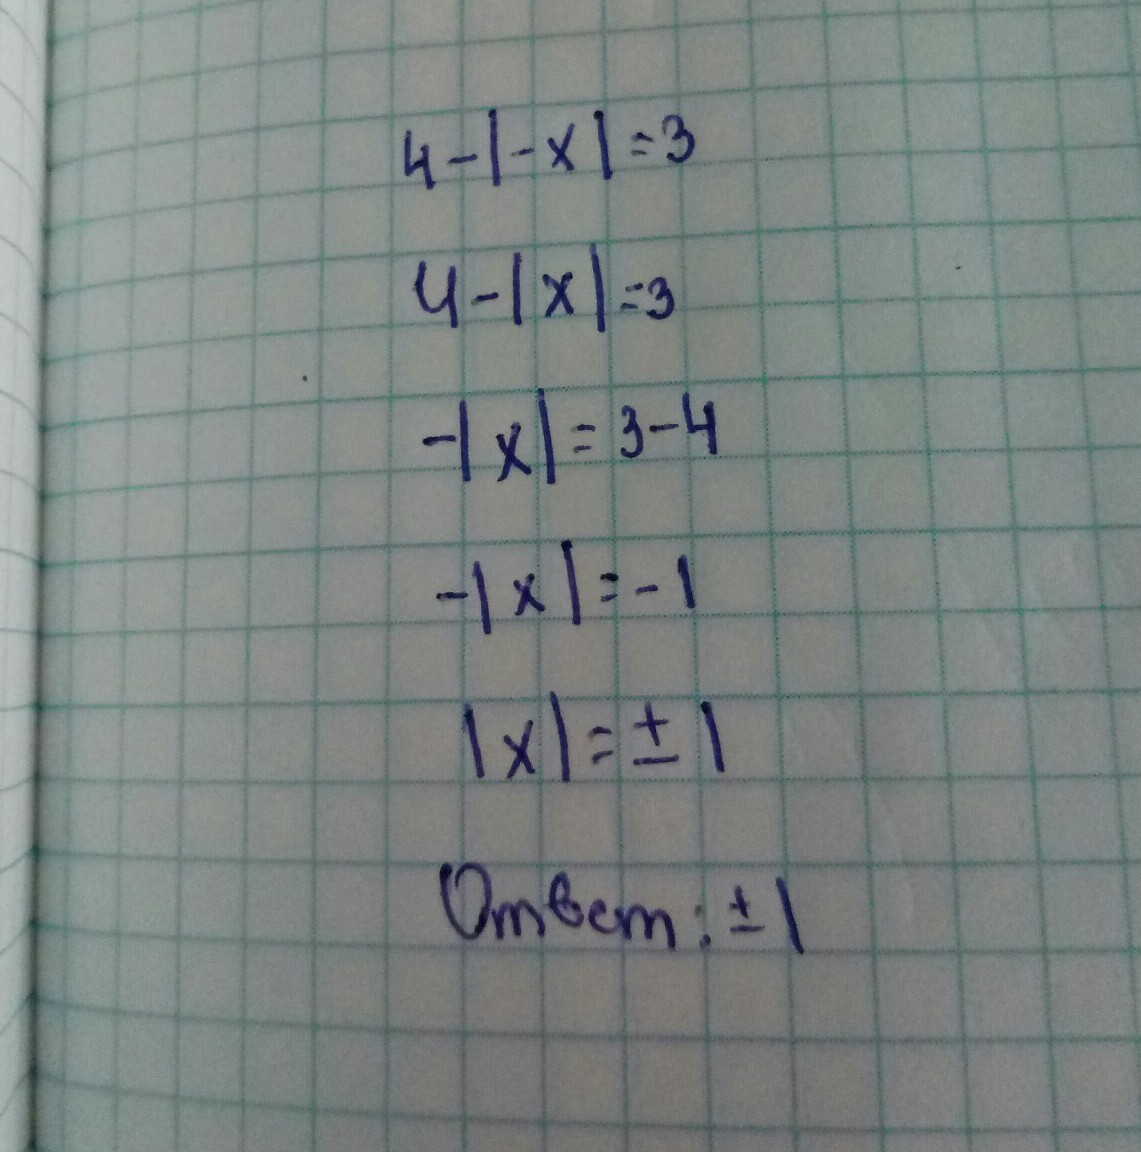 4-|-x|=3
4-|x|=3
-|x|=3-4
-|x|=-1
|x|=±1
Ответ: ±1